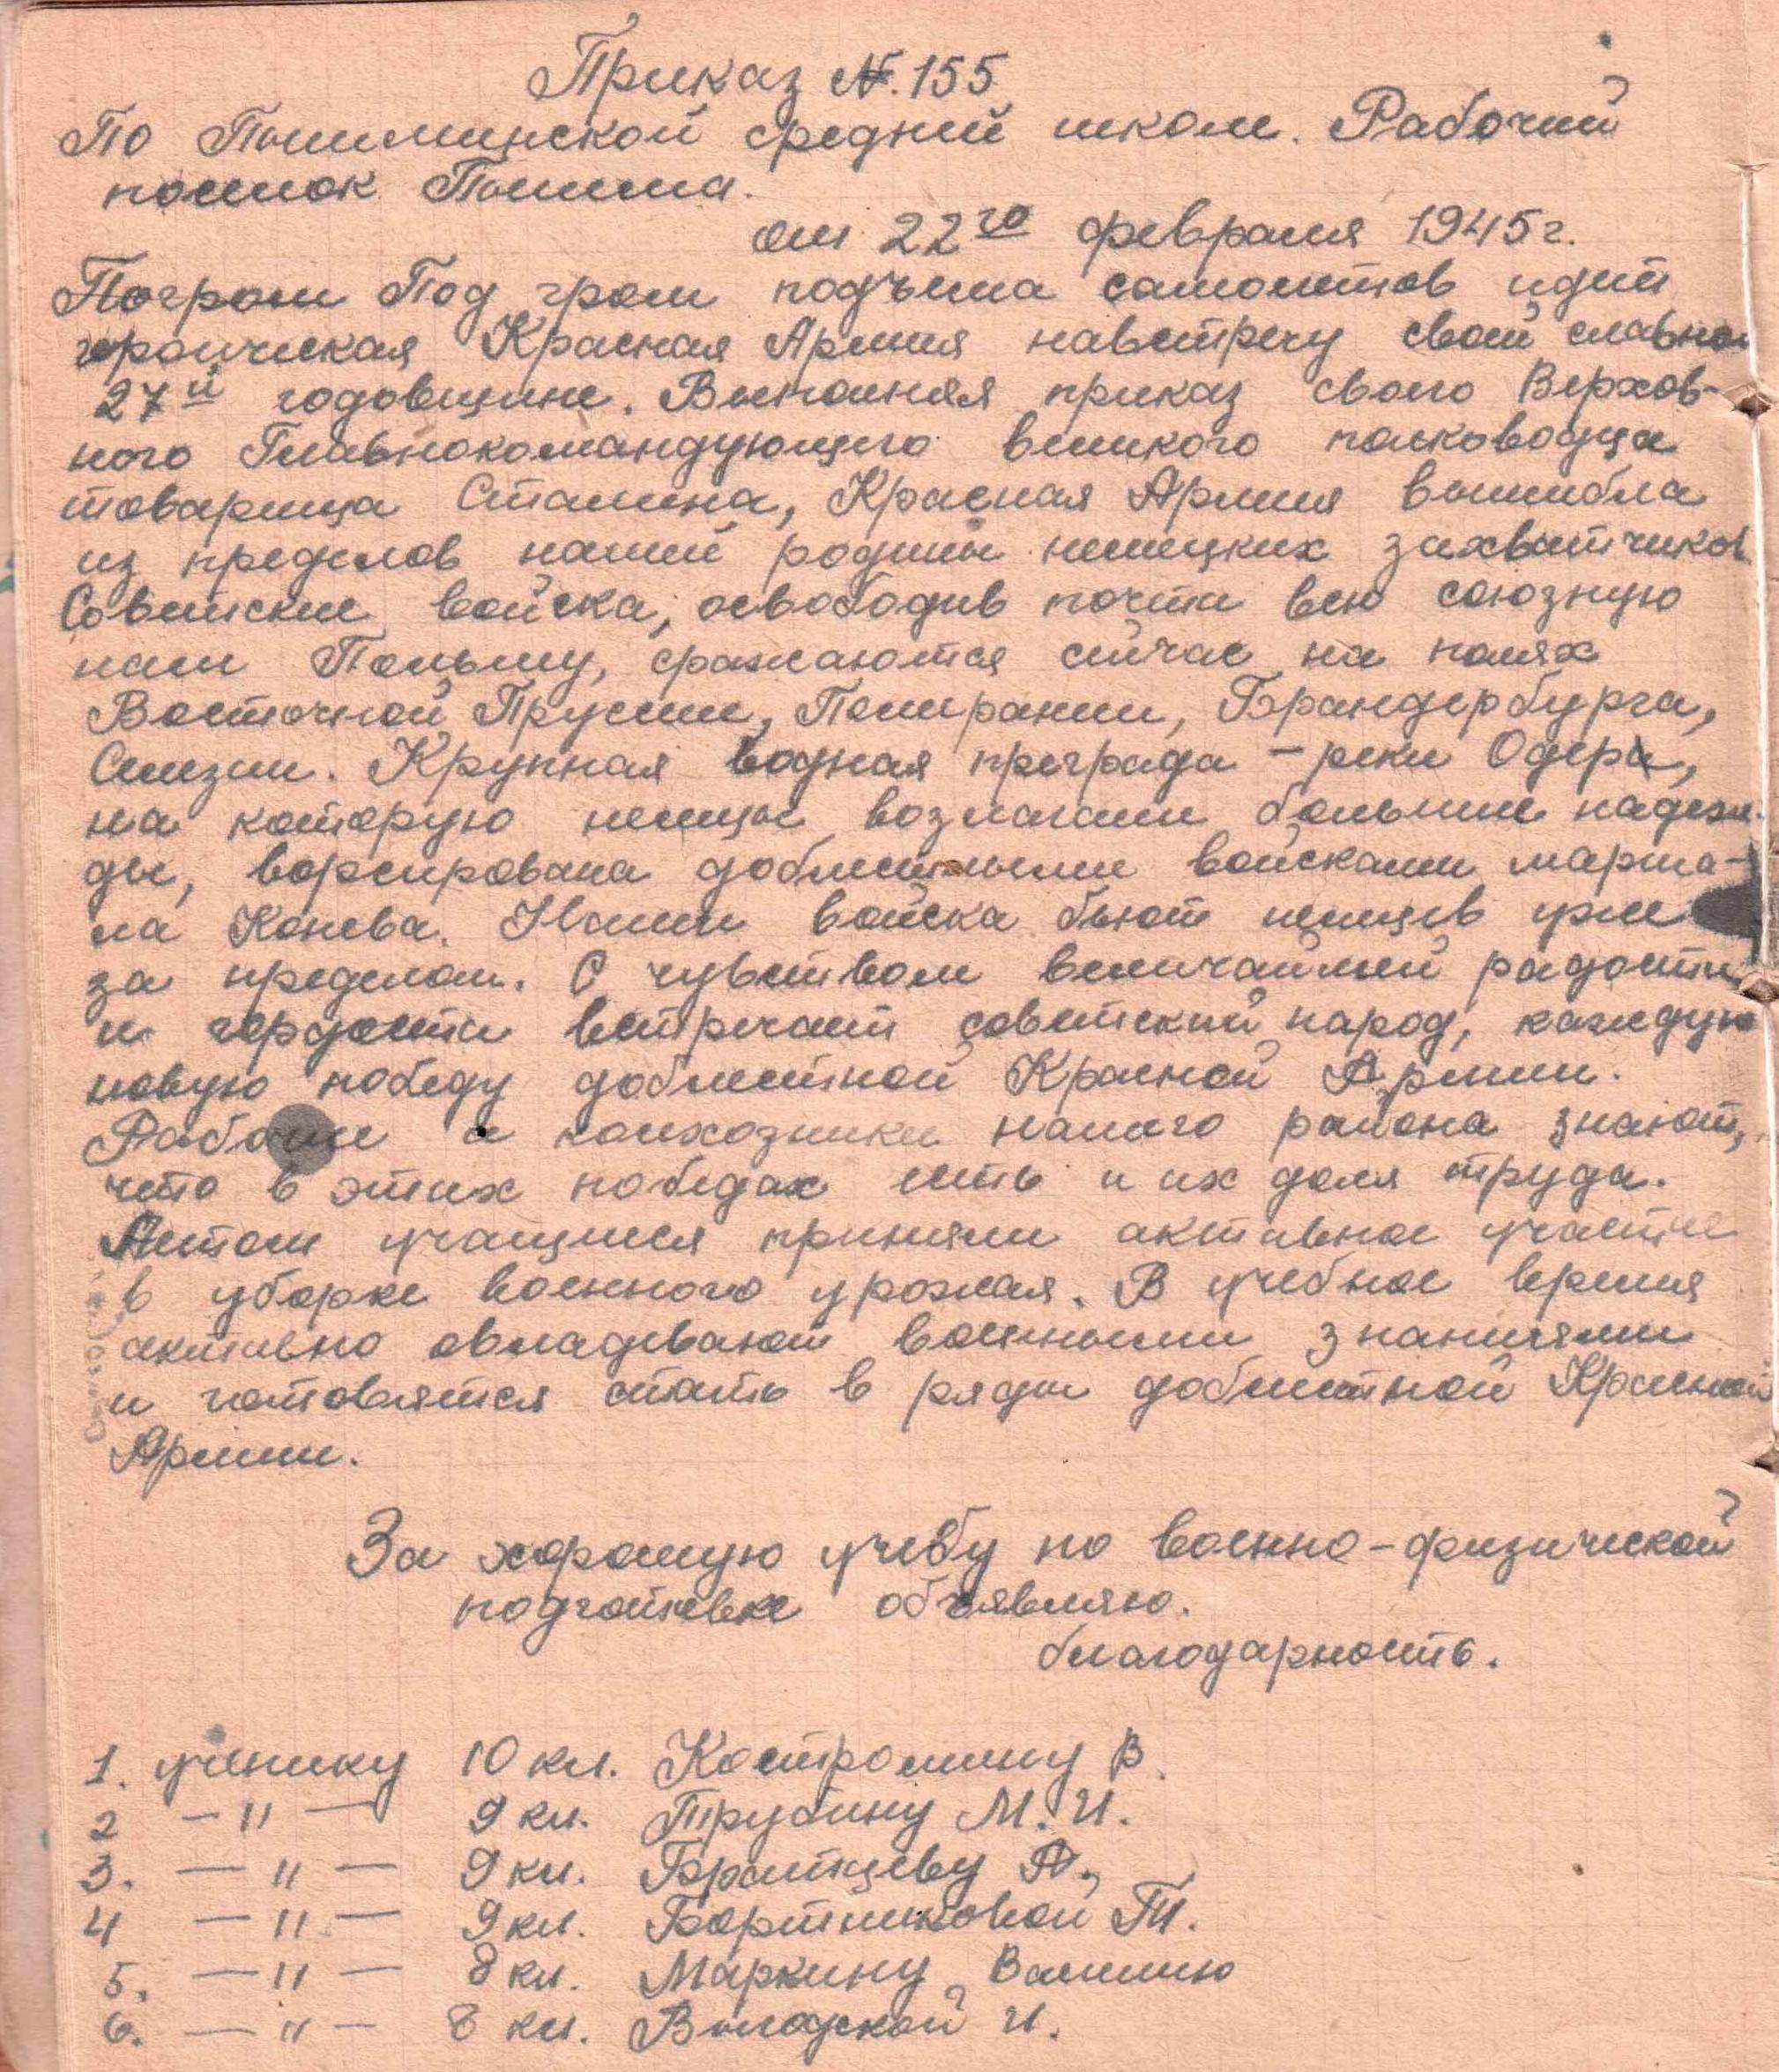 Приказ №. 155
По Пышминской средней школе. Рабочий
поселок Пышма.
от 22го февраля 1945г.
Погром Под гром подъема самолетов идет
героическая Красная Армия навстречу своей славной
27й годовщине. Выполняя приказ своего Верхов-
ного Главнокомандующего великого полководца
товарища Сталина, Красная Армия вышибла
из пределов нашей родины немецких захватчиков
Советские войска, освободив почти всю союзную
нам Польшу, сражаются сейчас на полях
Восточной Пруссии, Померании, Брандербурга,
Силезии. Крупная водная преграда - реки Одера,
на которую немцы возлагали большие надеж-
ды, ворсирована доблестными войсками марша-
ла Конева. Наши войска бьют немцев уже
за пределом. С чувством величайшей радости
и гордости встречает советский народ, каждую
новую победу доблестной Красной Армии.
Рабочие и колхозники нашего района знают,
что в этих победах есть и их доля труда.
Летом учащиеся приняли активное участие
в уборке военного урожая. В учебное время
активно овладевают военными знаниями
и готовятся стать в ряды доблестной Красной
Армии.
За хорошую учебу по военно-физической
подготовке объявляю.
благодарность.
1. ученику 10 кл. Костромину В.
2 — " — 9 кл. Трубину М. И.
3. — " — 9 кл. Братцеву А.,
4 — " — 9 кл. Бортниковой Т.
5. — " — 8 кл. Маркину Василию
6. — " — 8 кл. Вологской И.